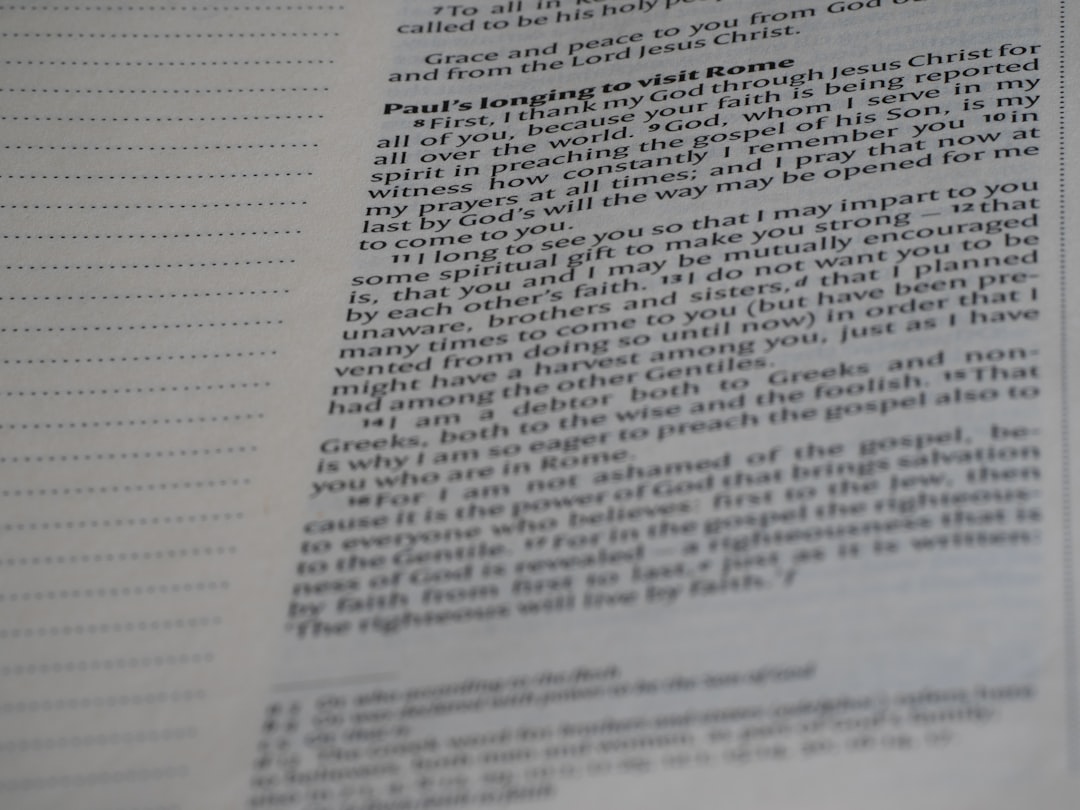 7To all in
called to be his holy
Grace and peace to you from God
and from the Lord Jesus Christ.
Paul's longing to visit Rome
8First, I thank my God through Jesus Christ for
all of you, because your faith is being reported
all over the world. 9God, whom I serve in my
spirit in preaching the gospel of his Son, is my
witness how constantly I remember you 10in
my prayers at all times; and I pray that now at
last by God's will the way may be opened for me
to come to you.
11I long to see you so that I may impart to you
some spiritual gift to make you strong – 12that
is, that you and I may be mutually encouraged
by each other's faith. 13I do not want you to be
unaware, brothers and sisters,d that I planned
many times to come to you (but have been pre-
vented from doing so until now) in order that I
might have a harvest among you, just as I have
had among the other Gentiles.
14I am a debtor both to Greeks and non-
Greeks, both to the wise and the foolish. 15That
is why I am so eager to preach the gospel also to
you who are in Rome.
16For I am not ashamed of the gospel, be-
cause it is the power of God that brings salvation
to everyone who believes: first to the Jew, then
to the Gentile. 17For in the gospel the righteous-
ness of God is revealed – a righteousness that is
by faith from first to last,e just as it is written:
'The righteous will live by faith.'f
Or who according to the flesh
Or was declared with power to be the Son of God